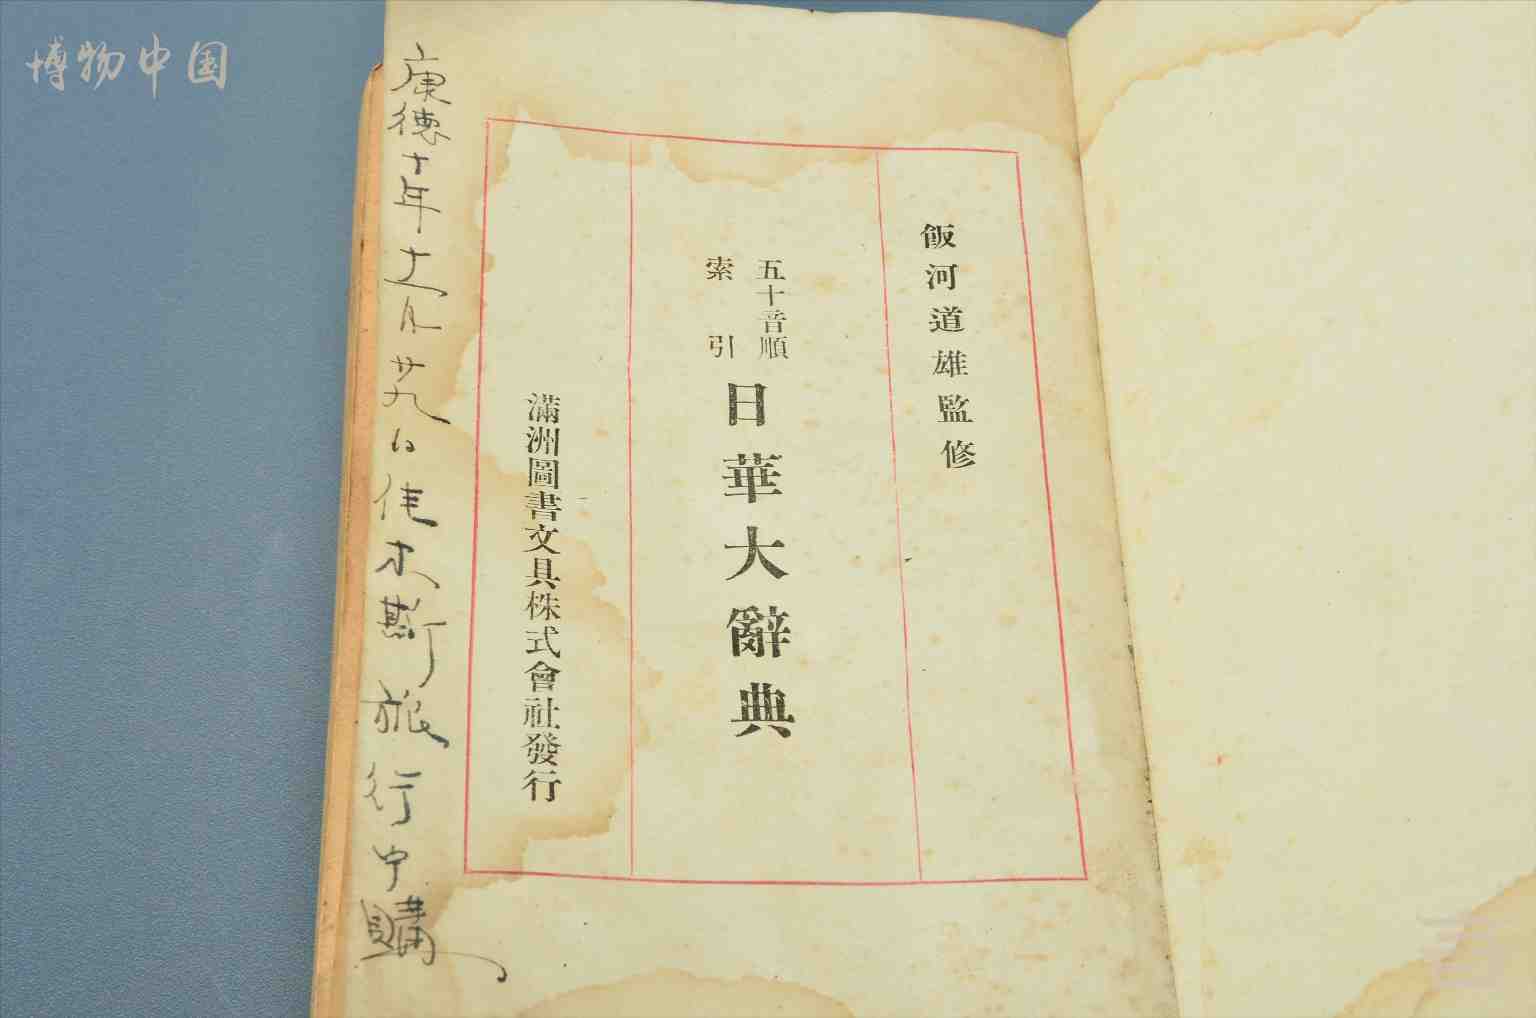 博物中国
飯河道雄監修
五十音順
索引
日華大辭典
滿洲圖書文具株式會社發行
康德十年十一月廿九日佳木斯旅行中購